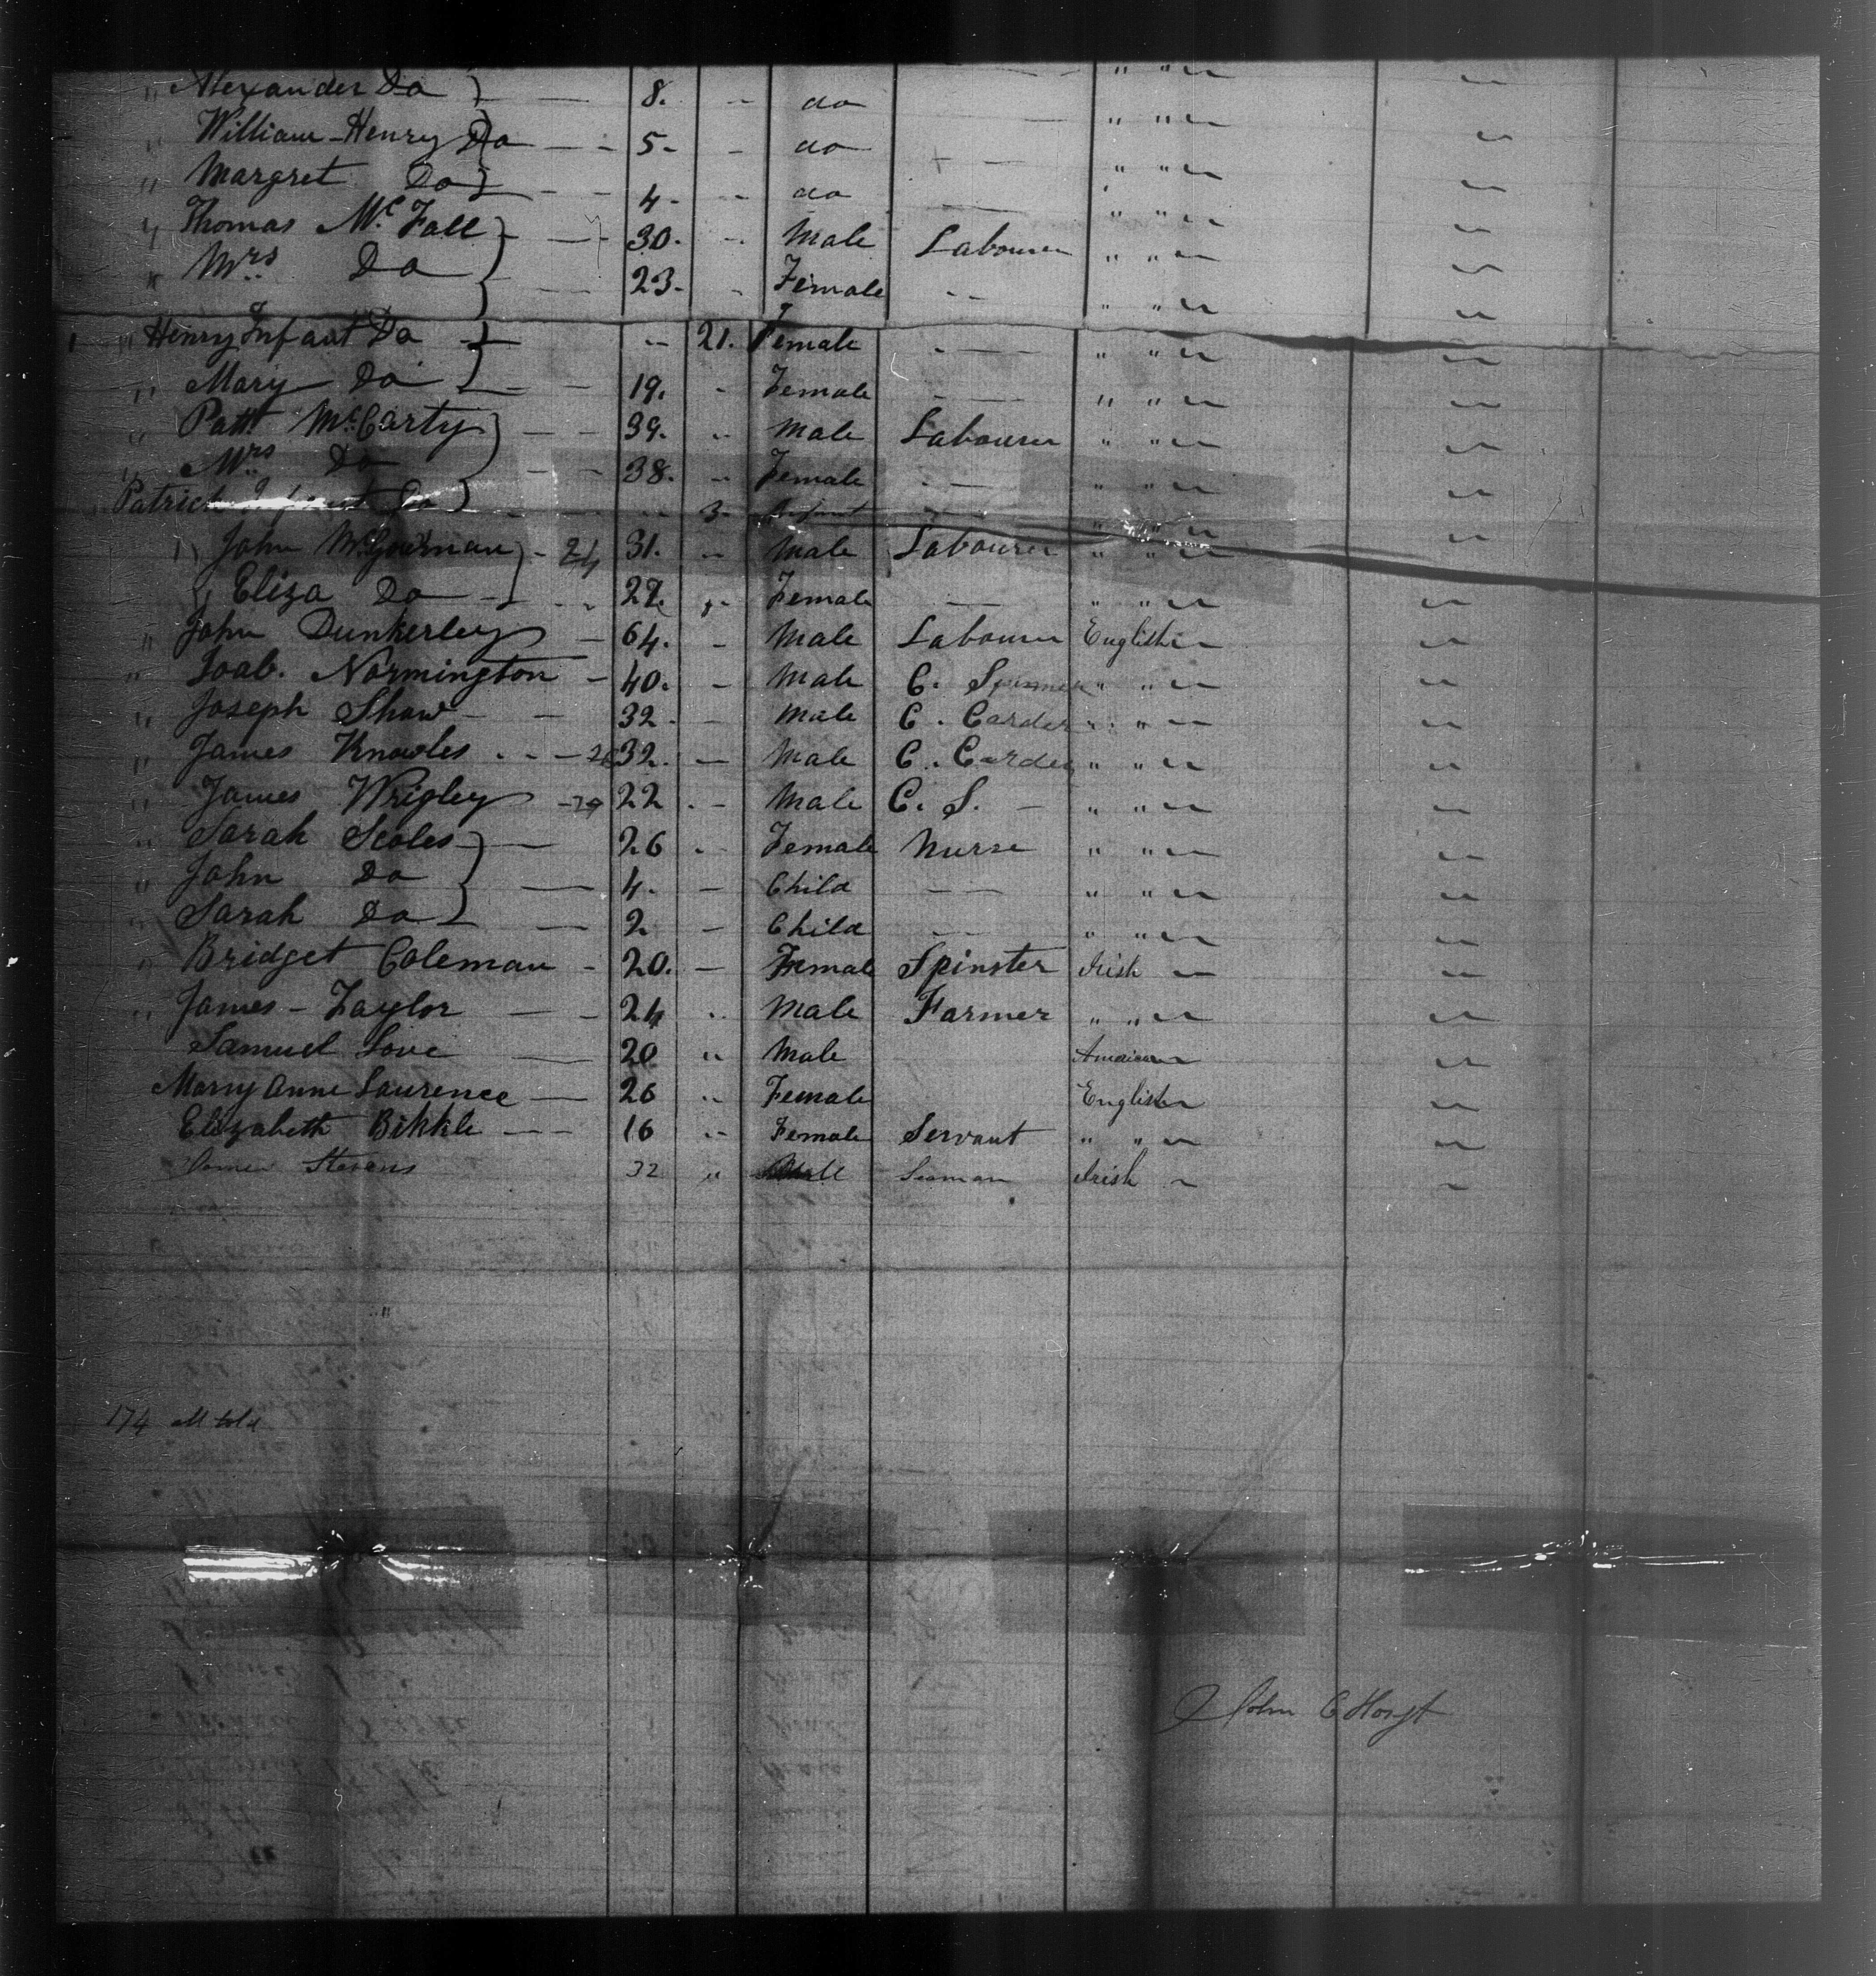 " Alexander Do } — 8. " do " " "
" William-Henry Do — - 5 - - do — " " "
" Margret Do } - - 4 - " do — " " "
" Thomas McFall } - — 30. " Male Labourer " " "
" Mrs Do } — 23. - Female - - " " "
" Henry Infant Do } " 21. Female - — " " "
" Mary Do } - - 19. - Female - — " " "
" Patt McCarty } — - 39. " Male Labourer " " "
" Mrs Do } - - 38. " Female - — " " "
Patrick Do } - " 3 - Infant - — " " "
" John McGowrnan } - 24 31. " Male Labourer " " "
" Eliza Do - } - - 27. " Female — " " "
" John Dunkerley — 64. - Male Labourer English "
" Joab. Normington - 40. - Male C. Spinner " " "
" Joseph Shaw - - 32. - Male C. Carder " " "
" James Knowles - - - 32. — Male C. Carder " " "
" James Wrigley 22. - Male C. S. — " " "
" Sarah Scoles } — 26 - - Female Nurse " " "
" John Do } — 4. — Child — — " " "
" Sarah Do } — 2 - Child — — " " "
" Bridget Coleman - 20. — Female Spinster Irish "
" James - Taylor — - 24 " Male Farmer " " "
Samuel Love — 20 " Male American "
Marry Anne Laurence — 26 " Female English "
Elizabeth Bikkle - - - 16 " Female Servant " " "
Stevens 32 " Male Seaman Irish "
174
John C Hoyt